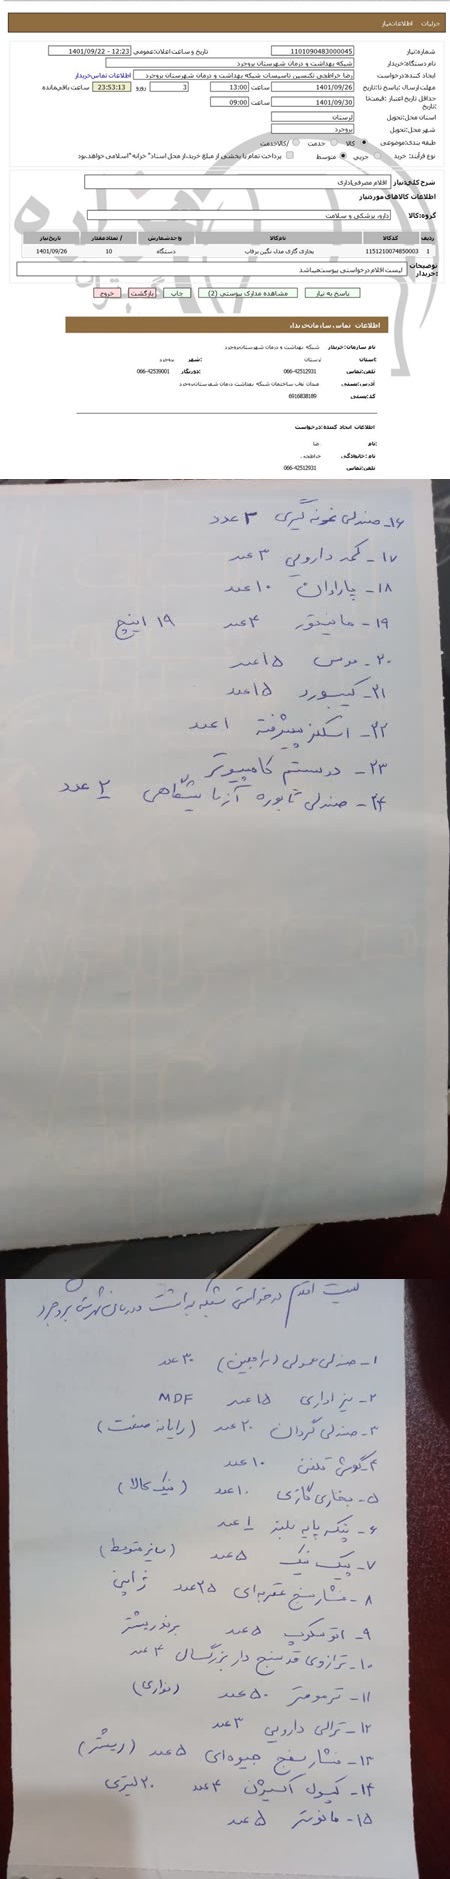 جزئیات اطلاعات نیاز
شماره نیاز: 1101090483000045 تاریخ و ساعت اعلان عمومی: 1401/09/22 - 12:23
نام دستگاه خریدار: شبکه بهداشت و درمان شهرستان بروجرد
ایجاد کننده درخواست: رضا خراطچی تکنسین تاسیسات شبکه بهداشت و درمان شهرستان بروجرد اطلاعات تماس خریدار
مهلت ارسال پاسخ تا تاریخ: 1401/09/26 ساعت 13:00 3 روز و 23:53:13 ساعت باقی مانده
حداقل تاریخ اعتبار قیمت تا تاریخ: 1401/09/30 ساعت 09:00
استان محل تحویل: لرستان
شهر محل تحویل: بروجرد
طبقه بندی موضوعی: کالا خدمت کالا/خدمت
نوع فرآیند خرید: جزیی متوسط پرداخت تمام یا بخشی از مبلغ خرید،از محل اسناد "خزانه اسلامی" خواهد بود.
شرح کلی نیاز: اقلام مصرفی اداری
اطلاعات کالاهای مورد نیاز
گروه کالا: دارو، پزشکی و سلامت
ردیف کد کالا نام کالا واحد شمارش تعداد / مقدار تاریخ نیاز
1 1151210074850003 بخاری گازی مدل نگین برفاب دستگاه 10 1401/09/26
توضیحات خریدار: لیست اقلام درخواستی پیوست میباشد
پاسخ به نیاز مشاهده مدارک پیوستی (2) چاپ بازگشت خروج
اطلاعات تماس سازمان خریدار
نام سازمان خریدار: شبکه بهداشت و درمان شهرستان بروجرد
استان: لرستان شهر: بروجرد
تلفن تماس: 066-42512931 دورنگار: 066-42539001
آدرس پستی: میدان نواب ساختمان شبکه بهداشت درمان شهرستان بروجرد
کد پستی: 6916838189
اطلاعات ایجاد کننده درخواست
نام: رضا
نام خانوادگی: خراطچی
تلفن تماس: 066-42512931
۱۶- صندلی نمونه گیری ۳ عدد
۱۷- کمد دارویی ۳ عدد
۱۸- پاراوان ۱۰ عدد
۱۹- مانیتور ۴ عدد ۱۹ اینچ
۲۰- موس ۱۵ عدد
۲۱- کیبورد ۱۵ عدد
۲۲- اسکنر پیشرفته ۱ عدد
۲۳- دو ستم کامپیوتر
۲۴- صندلی تابوره آزمایشگاهی ۲ عدد
لیست اقلام درخواستی شبکه بهداشت و درمان شهرستان بروجرد
۱- صندلی معمولی (مراجعین) ۳۰ عدد
۲- میز اداری ۱۵ عدد MDF
۳- صندلی گردان ۲۰ عدد (رایانه صنعت)
۴- گوشی تلفن ۱۰ عدد
۵- بخاری گازی ۱۰ عدد (نیک کالا)
۶- پنکه پایه بلند ۱ عدد
۷- پیک نیک ۵ عدد (سایز متوسط)
۸- فشارسنج عقربه‌ای ۲۵ عدد ژاپنی
۹- اتوسکوپ ۵ عدد برند ریشتر
۱۰- ترازوی قدسنج دار بزرگسال ۴ عدد
۱۱- ترمومتر ۵۰ عدد (نواری)
۱۲- ترالی دارویی ۳ عدد
۱۳- فشارسنج جیوه‌ای ۵ عدد (ریشتر)
۱۴- کپسول اکسیژن ۴ عدد ۲۰ لیتری
۱۵- مانومتر ۵ عدد